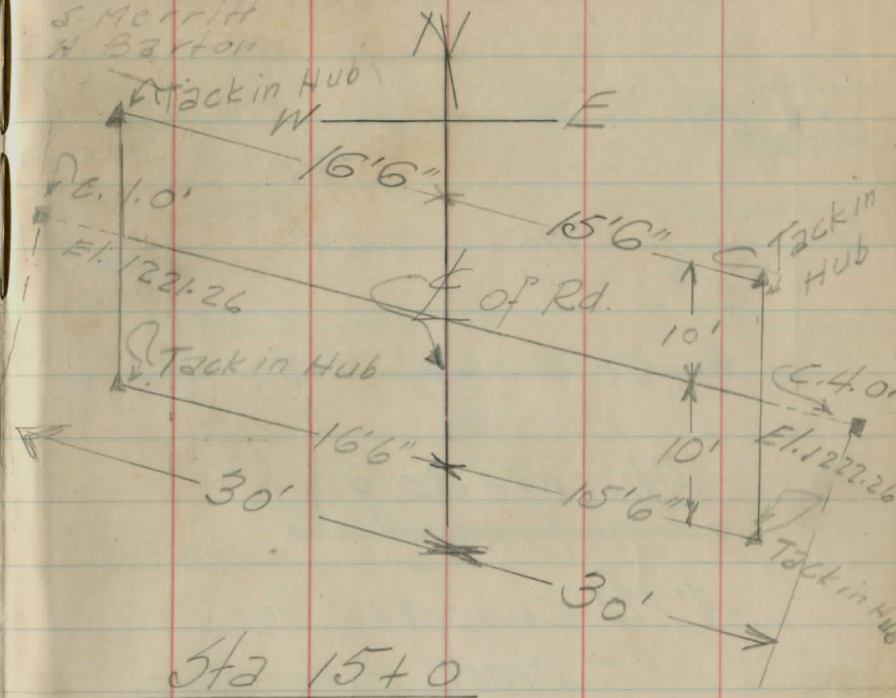 S. Merritt
H. Barton
N
Tack in Hub
W E
16'6"
C. 1.0'
15'6"
Tack in
Hub
El. 1221.26
℄ of Rd.
10'
Tack in Hub
C. 4.0'
16'6"
10'
El. 1222.26
30'
15'6"
Tack in Hub
30'
Sta 15+0